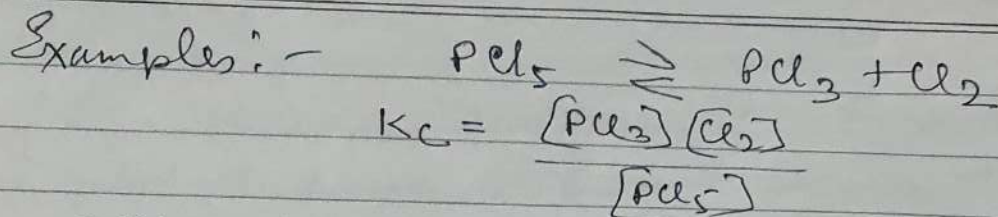 Examples:- PCl5 ⇌ PCl3 + Cl2
Kc = [PCl3] [Cl2]
[PCl5]